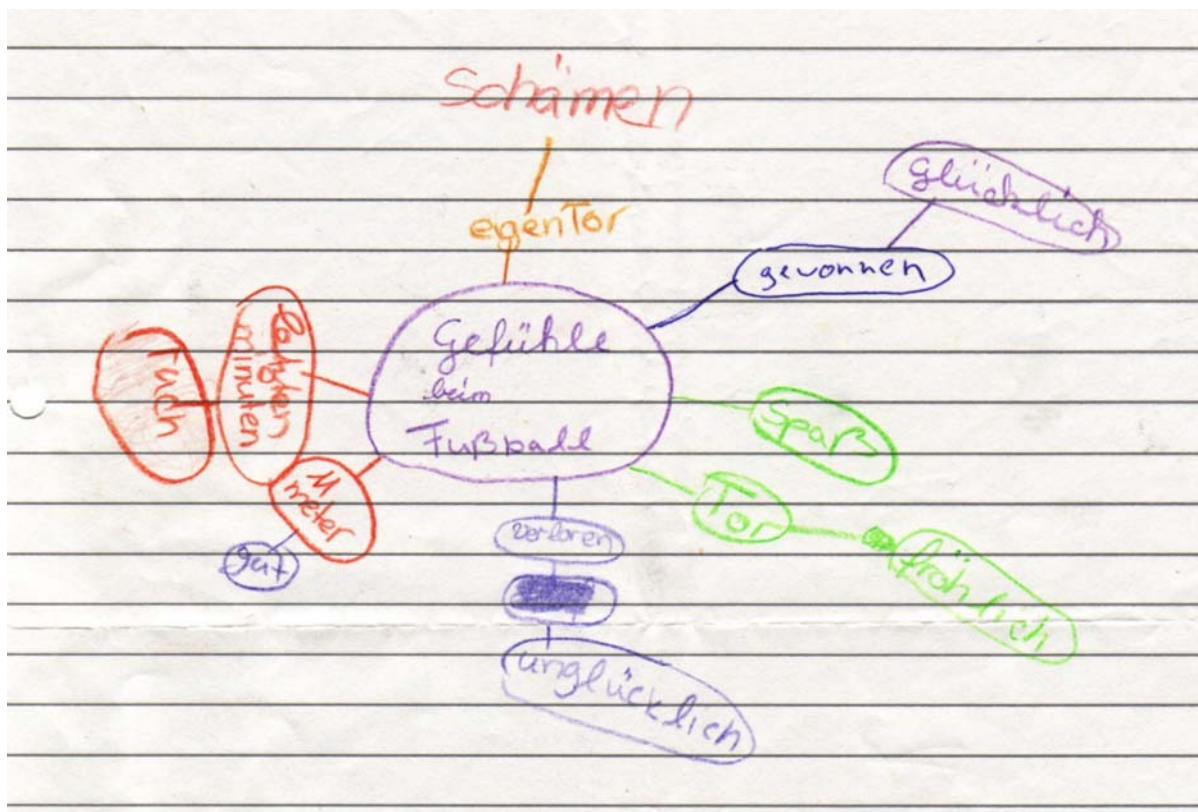 Schämen
eigenTor
Glücklich
gewonnen
Gefühle
beim
Fußball
Letzten
minuten
11
meter
gut
Spaß
Tor
fröhlich
verloren
unglücklich